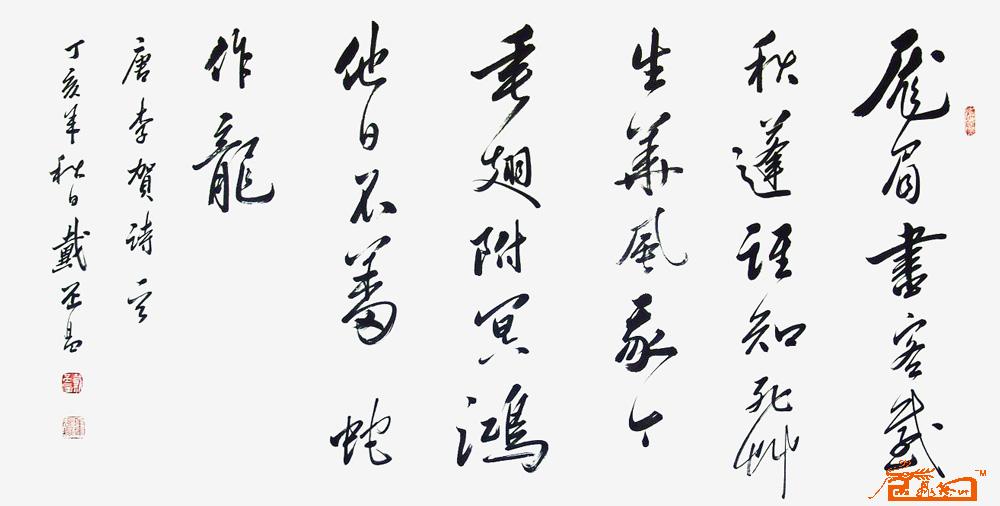 厖眉書客感
秋蓬誰知死艸
生華風我今
垂翅附冥鴻
他日不羞蛇
作龍
唐李賀詩
丁亥年秋日戴